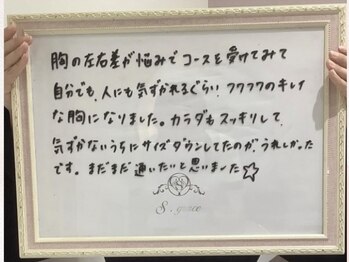 胸の左右差が悩みでコースを受けてみて
自分でも、人にも気ずかれるぐらい！フワフワのキレイ
な胸になりました。カラダもスッキリして、
気ずかないうちにサイズダウンしてたのが、うれしかった
です。まだまだ通いたいと思いました☆
S
S.grace